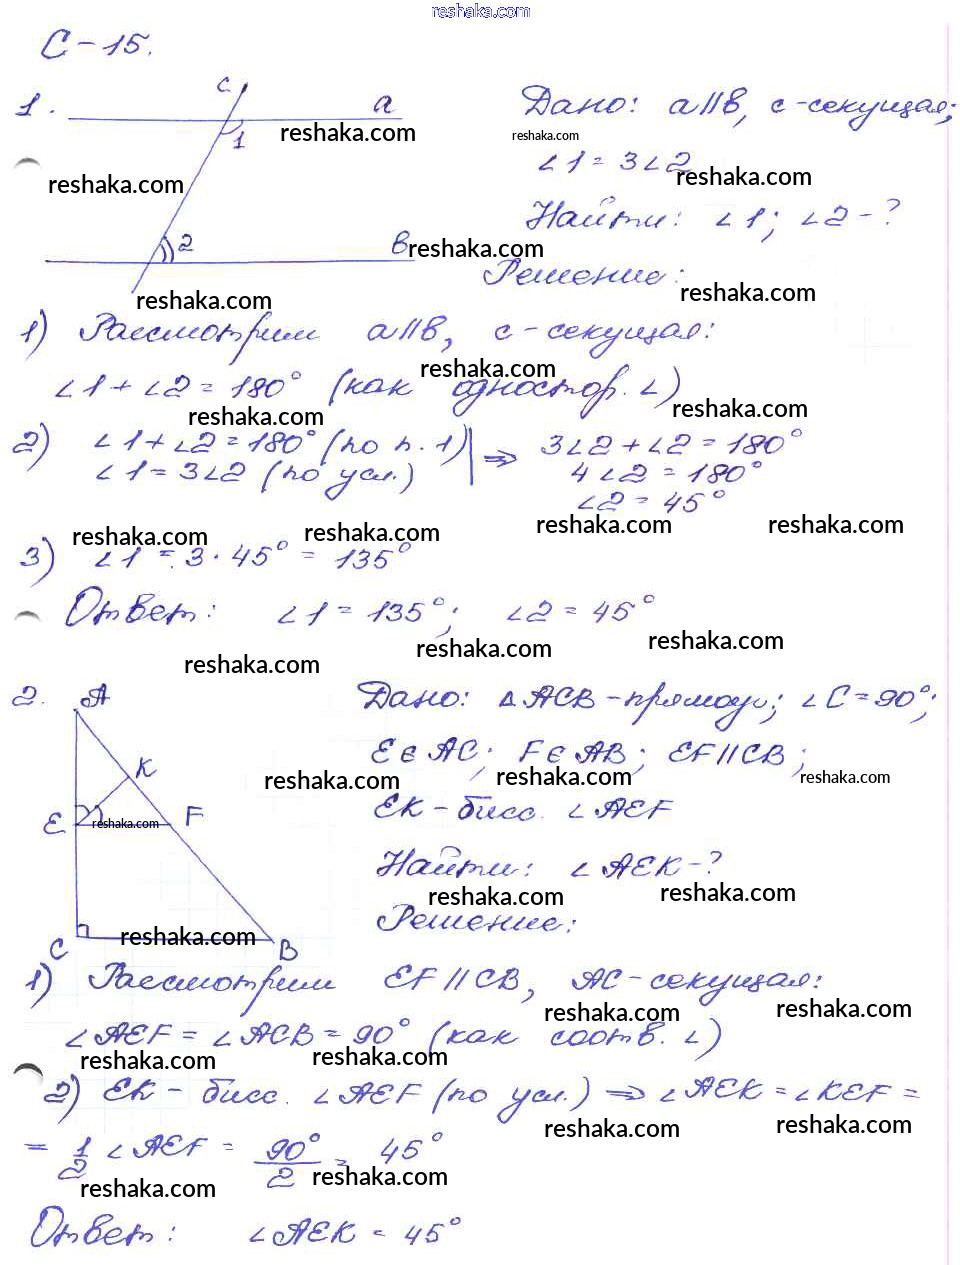 reshaka.com
С-15.
1.
c
a
1
reshaka.com
reshaka.com
2
в
reshaka.com
reshaka.com
Дано: a||в, c-секущая;
reshaka.com
∠1 = 3∠2
reshaka.com
Найти: ∠1; ∠2-?
Решение:
reshaka.com
1) Рассмотрим a||в, c-секущая:
reshaka.com
∠1 + ∠2 = 180° (как одностор. ∠)
reshaka.com reshaka.com
2) ∠1 + ∠2 = 180° (по п. 1) | ⇒ 3∠2 + ∠2 = 180°
∠1 = 3∠2 (по усл.) 4∠2 = 180°
∠2 = 45°
reshaka.com reshaka.com reshaka.com reshaka.com
3) ∠1 = 3 · 45° = 135°
Ответ: ∠1 = 135°; ∠2 = 45°
reshaka.com reshaka.com reshaka.com
2.
A
K
E
F
reshaka.com
C
B
reshaka.com
Дано: △ACB-прямоуг; ∠C = 90°;
E ∈ AC; F ∈ AB; EF||CB;
reshaka.com reshaka.com reshaka.com
EK-бисс. ∠AEF
Найти: ∠AEK-?
reshaka.com reshaka.com
Решение:
1) Рассмотрим EF||CB, AC-секущая:
reshaka.com reshaka.com
∠AEF = ∠ACB = 90° (как соотв. ∠)
reshaka.com reshaka.com
2) EK- бисс. ∠AEF (по усл.) ⇒ ∠AEK = ∠KEF =
reshaka.com reshaka.com
= 1/2 ∠AEF = 90°/2 = 45°
reshaka.com reshaka.com
Ответ: ∠AEK = 45°